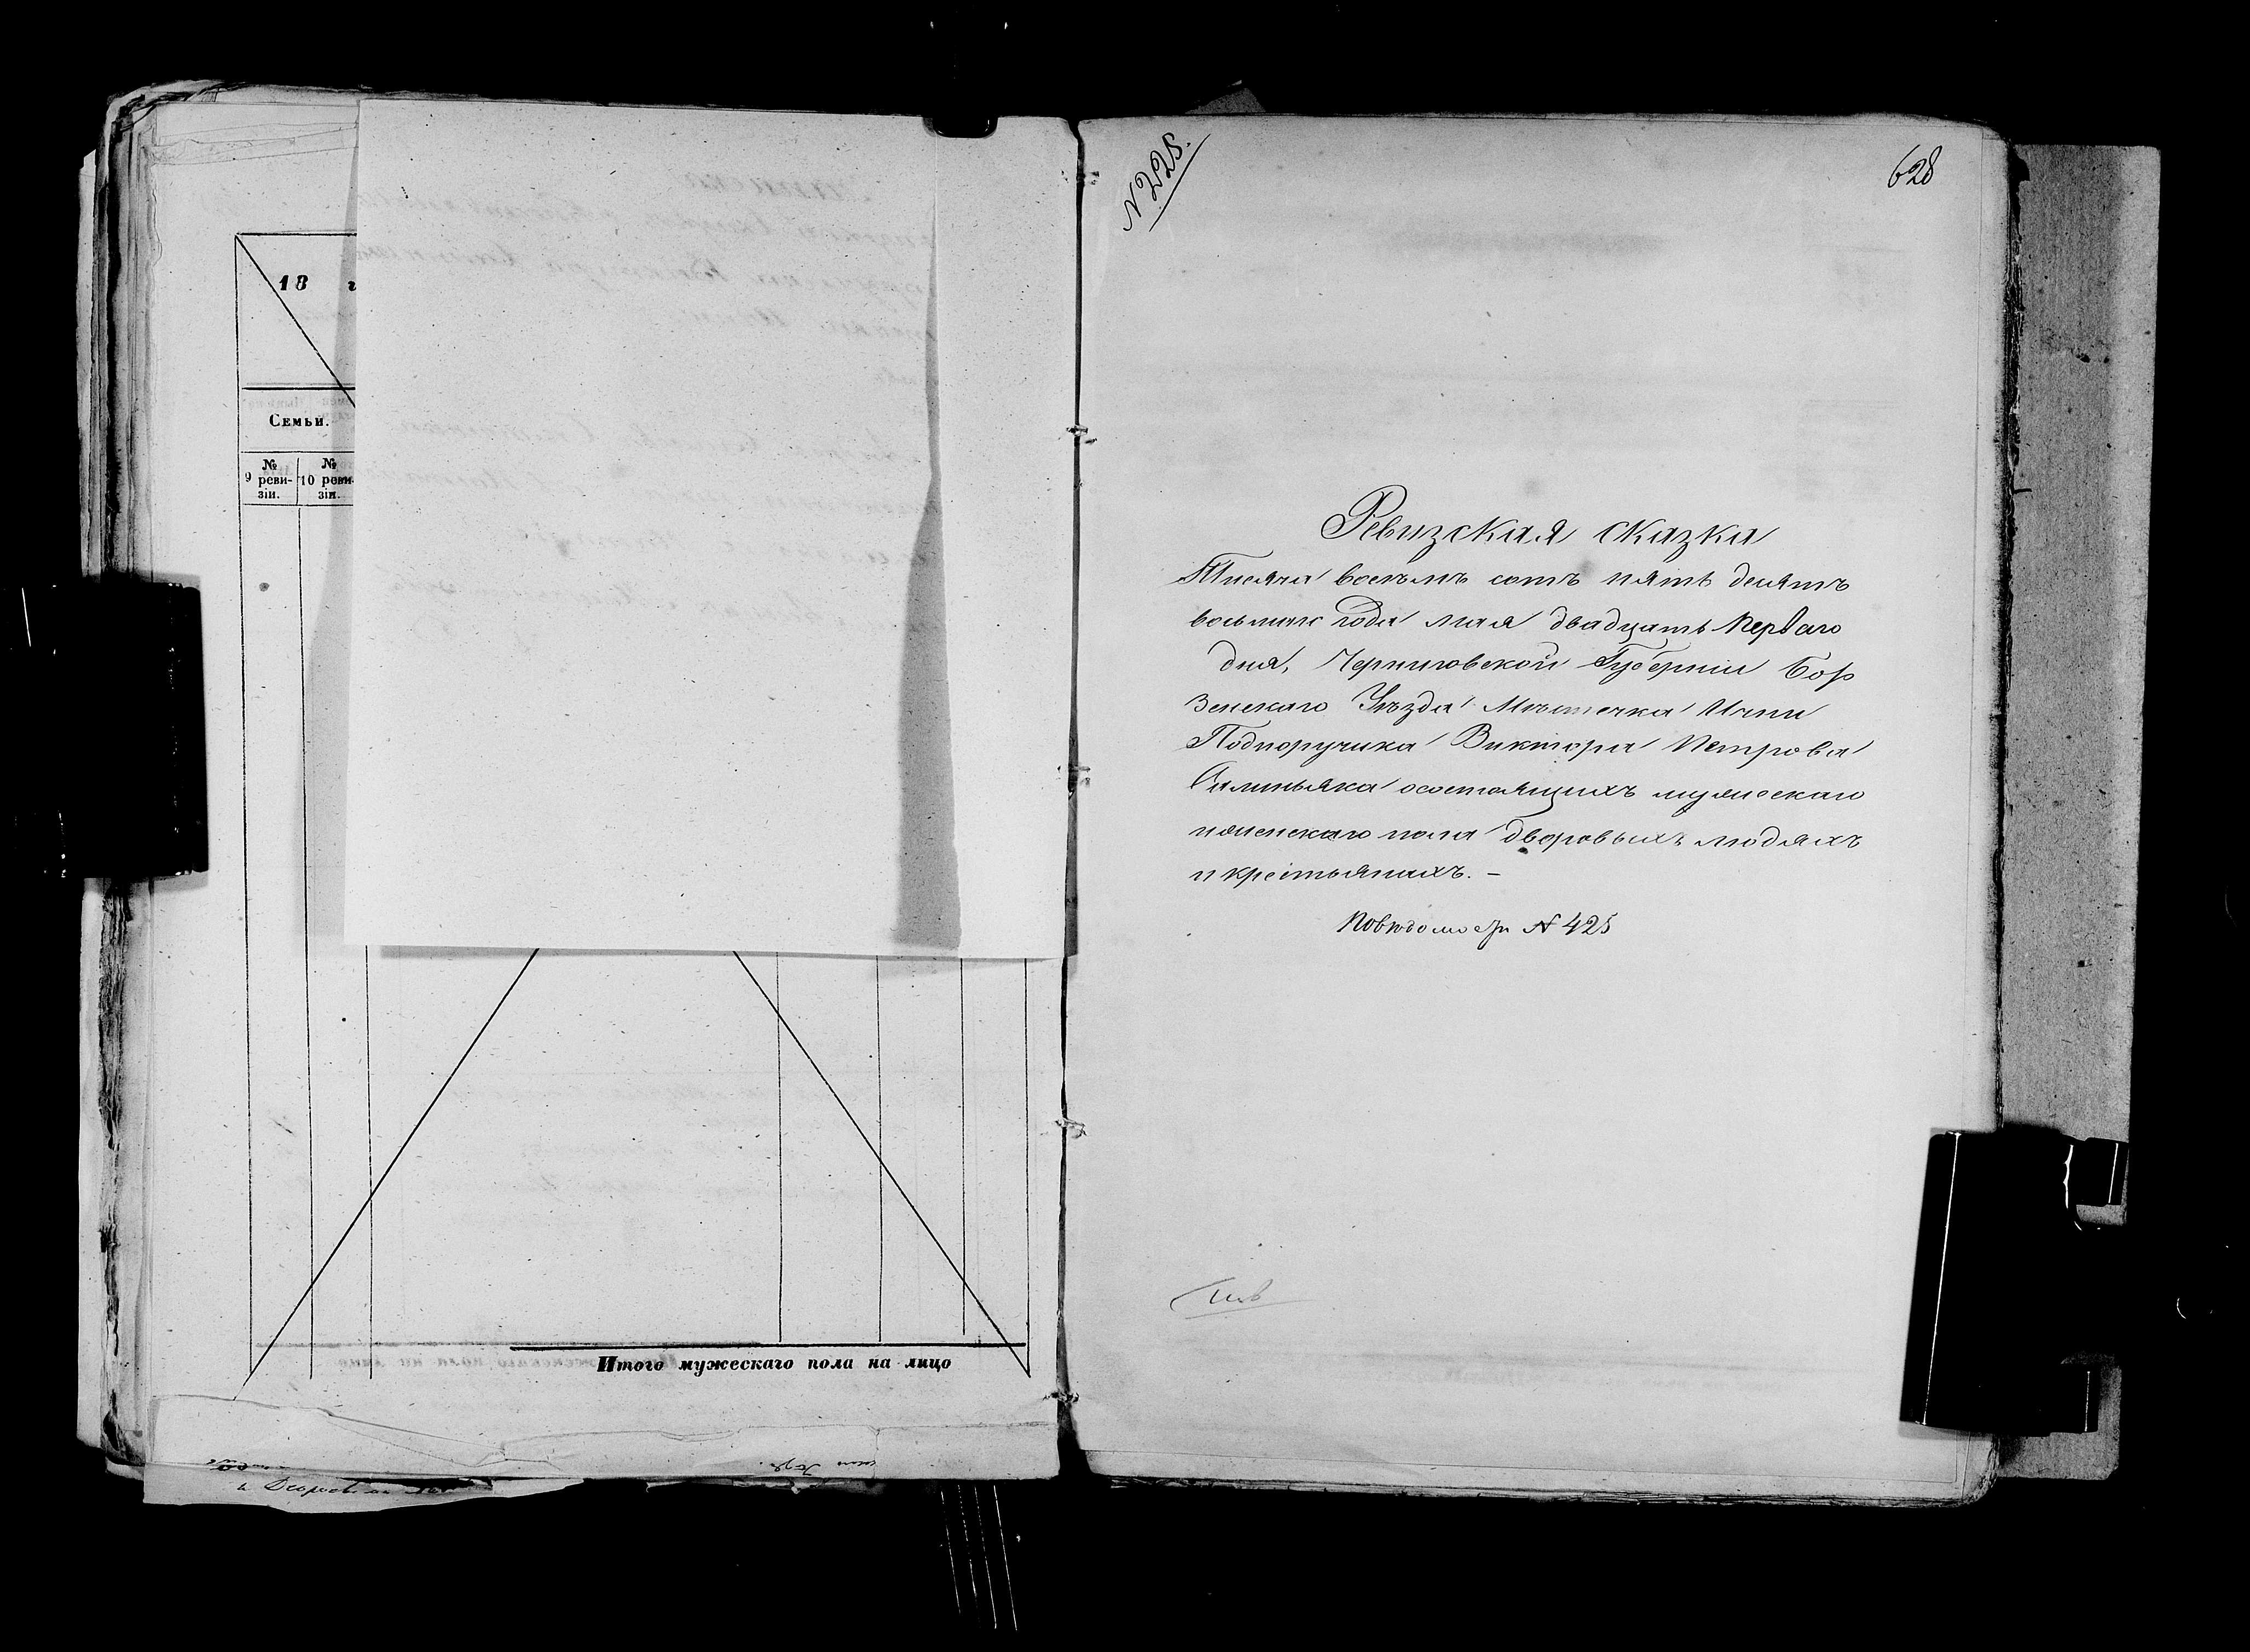 18 г
Семьи.
№ 9 реви-зіи.
№ 10 реви-зіи.
Итого мужескаго пола на лицо
N 228.
628
Ревизская сказка
Тысяча восемь сотъ пять десятъ
восьмаго года мая двадцать перваго
дня, Черниговской Губерніи Бор
зенскаго Уѣзда Мѣстечка Ични
Подпоручика Виктора Петрова
осостоящихъ мужескаго
иженскаго пола дворовыхъ людяхъ
и крестьянахъ. –
Повѣдомости N 425